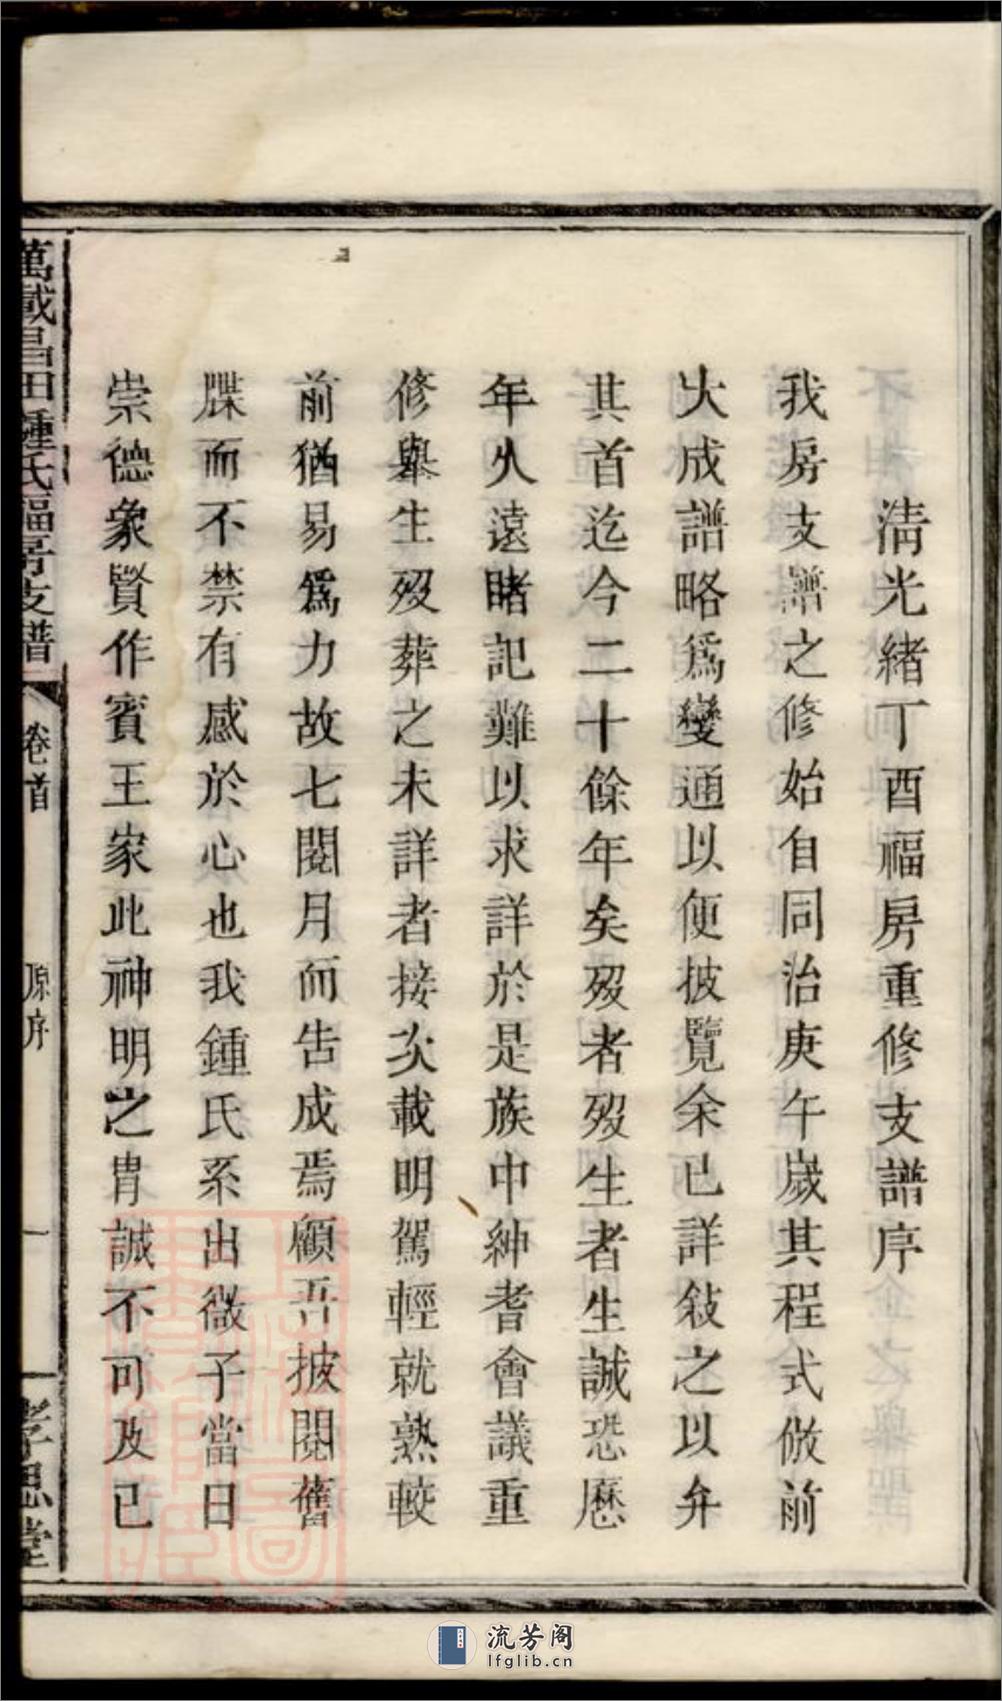 清光緒丁酉福房重修支譜序
我房支譜之修始自同治庚午歲其程式倣前
大成譜略爲變通以便披覽余已詳敍之以弁
其首迄今二十餘年矣歿者歿生者生誠恐歷
年久遠睹記難以求詳於是族中紳耆會議重
修舉生歿葬之未詳者接次載明駕輕就熟較
前猶易爲力故七閱月而告成焉顧吾披閱舊
牒而不禁有感於心也我鍾氏系出微子當日
崇德象賢作賓王家此神明之胄誠不可及已
萬載昌田鍾氏福房支譜
卷首
原序
一
孝思堂
流芳阁
lfglib.cn